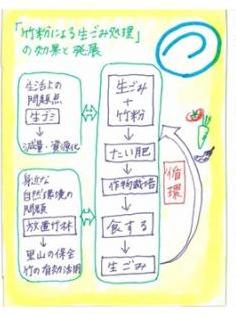 「竹粉による生ごみ処理」
の効果と発展
生活上の
問題点
生ゴミ
→
減量・資源化
身近な
自然環境の
問題
放置竹林
→
里山の保全
竹の有効活用
生ごみ
+
竹粉
たい肥
作物栽培
食する
生ごみ
循環